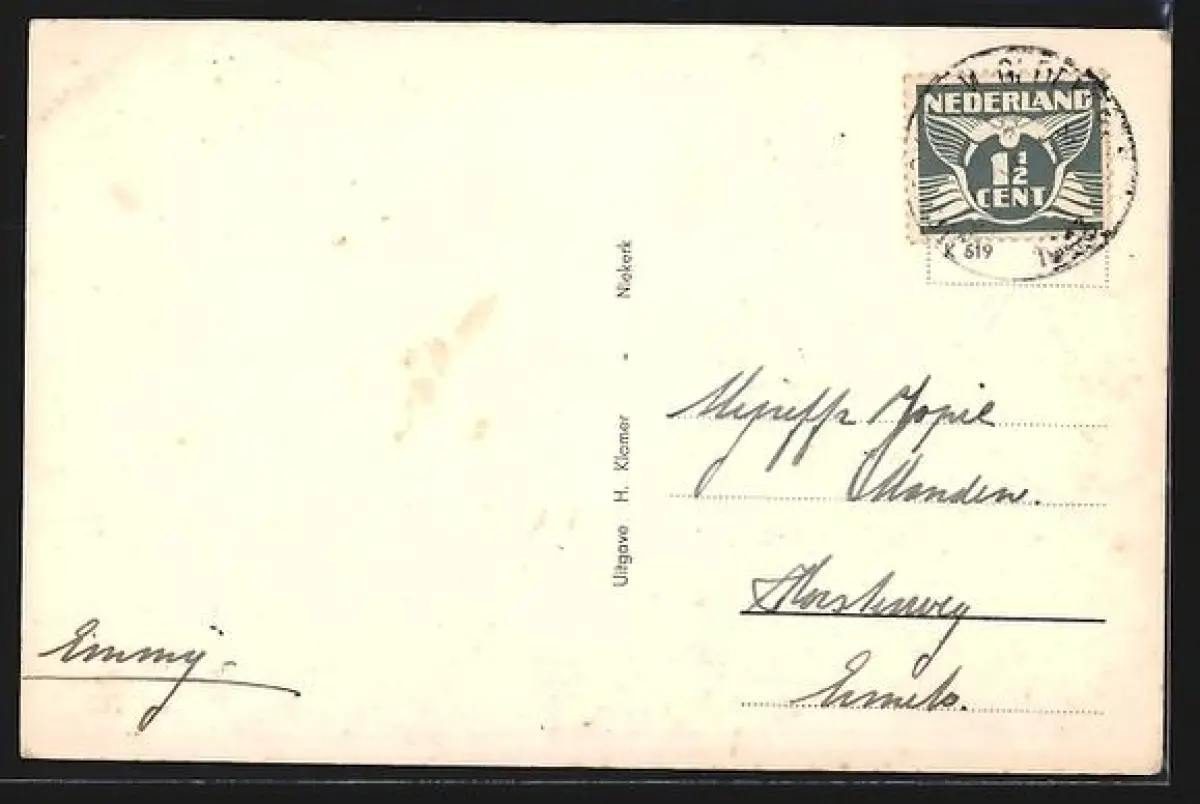 NEDERLAND
1 1/2
CENT
K 619
Uitgave H. Klamer - Niekerk
Mejuffr Jopie
Manden.
Horsterweg
Ermelo.
Emmy.